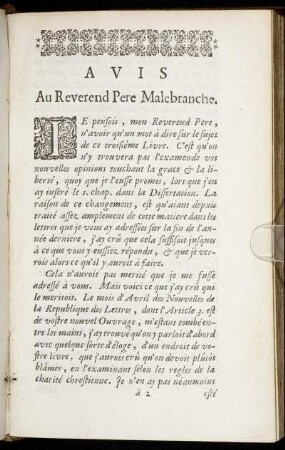 AVIS
Au Reverend Pere Malebranche.
JE pensois, mon Reverend Pere,
n'avoir qu'un mot à dire sur le sujet
de ce troisiéme Livre. C'est qu'on
n'y trouvera pas l'examen de vos
nouvelles opinions touchant la grace & la li-
berté, quoy que je l'eusse promis, lors que j'en
ay inseré le 1. chap. dans la Dissertation. La
raison de ce changement, est qu'aiant depuis
traité assez amplement de cette matiere dans les
lettres que je vous ay adressées sur la fin de l'an-
née derniere, j'ay crû que cela suffisoit jusques
à ce que vous y eussiez répondu, & que je ver-
rois alors ce qu'il y auroit à faire.
Cela n'auroit pas merité que je me fusse
adressé à vous. Mais voici ce que j'ay crû qui
le meritoit. Le mois d'Avril des Nouvelles de
la Republique des Lettres, dont l'Article 3. est
de vostre nouvel Ouvrage, m'estant tombé en-
tre les mains, j'ay trouvé qu'on y parloit d'abord
avec quelque sorte d'éloge, d'un endroit de vo-
stre livre, que j'aurois crû qu'on devoit plûtôt
blâmer, en l'examinant selon les regles de la
charité chrestienne. Je n'en ay pas neanmoins
à 2 esté